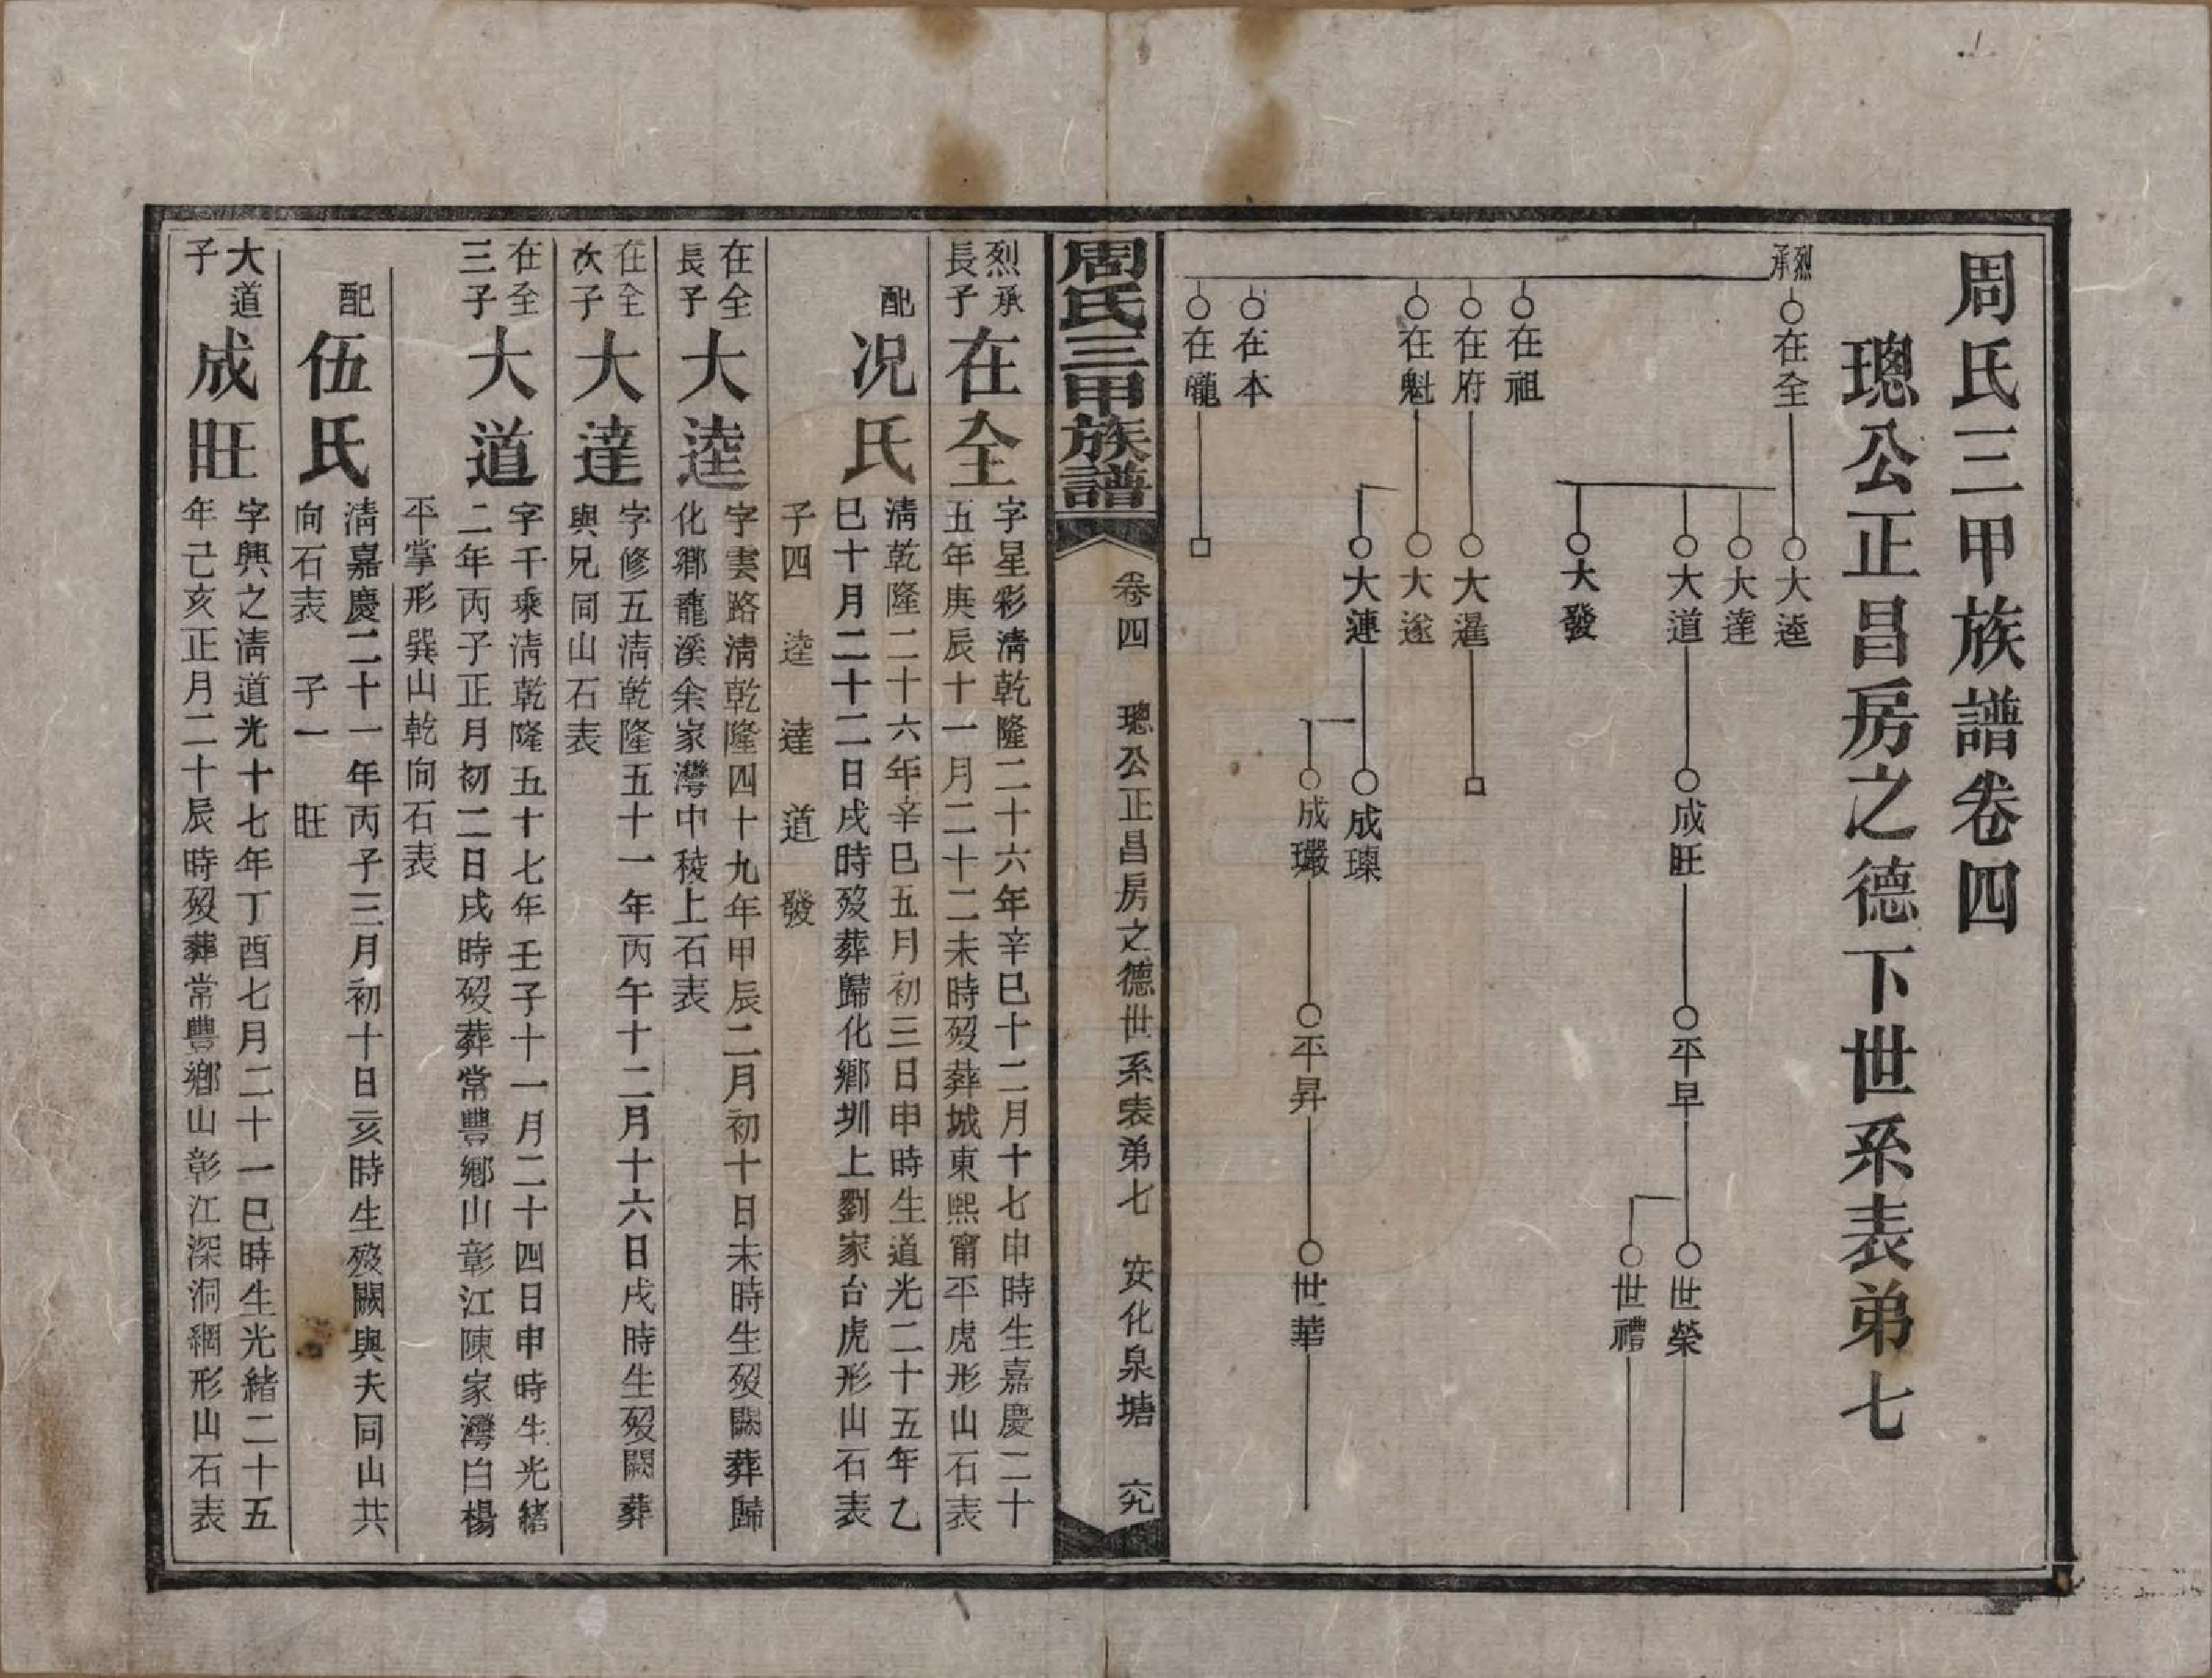 周氏三甲族譜卷四
璁公正昌房之德下世系表弟七
烈承
在全
大逵
大達
大道
成旺
平早
世榮
世禮
大發
在祖
在府
大暹
在魁
大遂
大連
成璖
成瓛
平昇
世華
在本
在瓏
周氏三甲族譜
卷四 璁公正昌房之德世系表弟七 安化泉塘 究
烈承長子
在全
字星彩淸乾隆二十六年辛巳十二月十七申時生嘉慶二十
五年庚辰十一月二十二未時歿葬城東熙甯平虎形山石表
配
况氏
淸乾隆二十六年辛巳五月初三日申時生道光二十五年乙
巳十月二十二日戌時歿葬歸化鄉圳上劉家台虎形山石表
子四 逵 達 道 發
在全長子
大逵
字雲路淸乾隆四十九年甲辰二月初十日未時生歿闕葬歸
化鄉龍溪余家灣中稜上石表
在全次子
大達
字修五淸乾隆五十一年丙午十二月十六日戌時生歿闕葬
與兄同山石表
在全三子
大道
字千乘淸乾隆五十七年壬子十一月二十四日申時生光緒
二年丙子正月初二日戌時歿葬常豐鄉山彰江陳家灣白楊
平掌形巽山乾向石表
配
伍氏
淸嘉慶二十一年丙子三月初十日亥時生歿闕與夫同山共
向石表 子一 旺
大道子
成旺
字興之淸道光十七年丁酉七月二十一巳時生光緒二十五
年己亥正月二十辰時歿葬常豐鄉山彰江深洞網形山石表